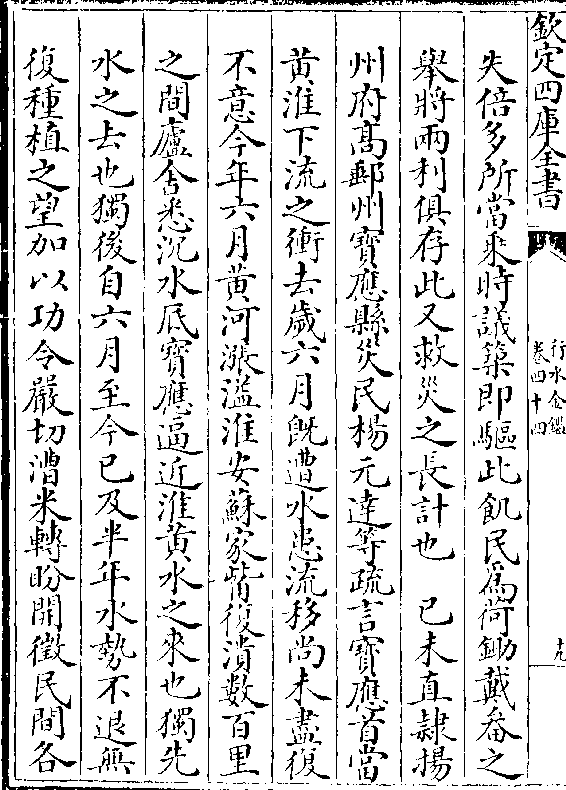 欽定四庫全書
行水金鑑
卷四十四
十九
失倍多所當乘時議築即驅此飢民為荷鋤戴畚之
舉將兩利俱存此又救災之長計也　己未直隸揚
州府髙郵州寳應縣災民楊元達等疏言寳應首當
黄淮下流之衝去歲六月旣遭水患流移尚未盡復
不意今年六月黄河漲溢淮安蘇家觜復潰數百里
之間廬舍悉沉水底寳應逼近淮黄水之來也獨先
水之去也獨後自六月至今已及半年水勢不退無
復種植之望加以功令嚴切漕米轉盼開徵民間各